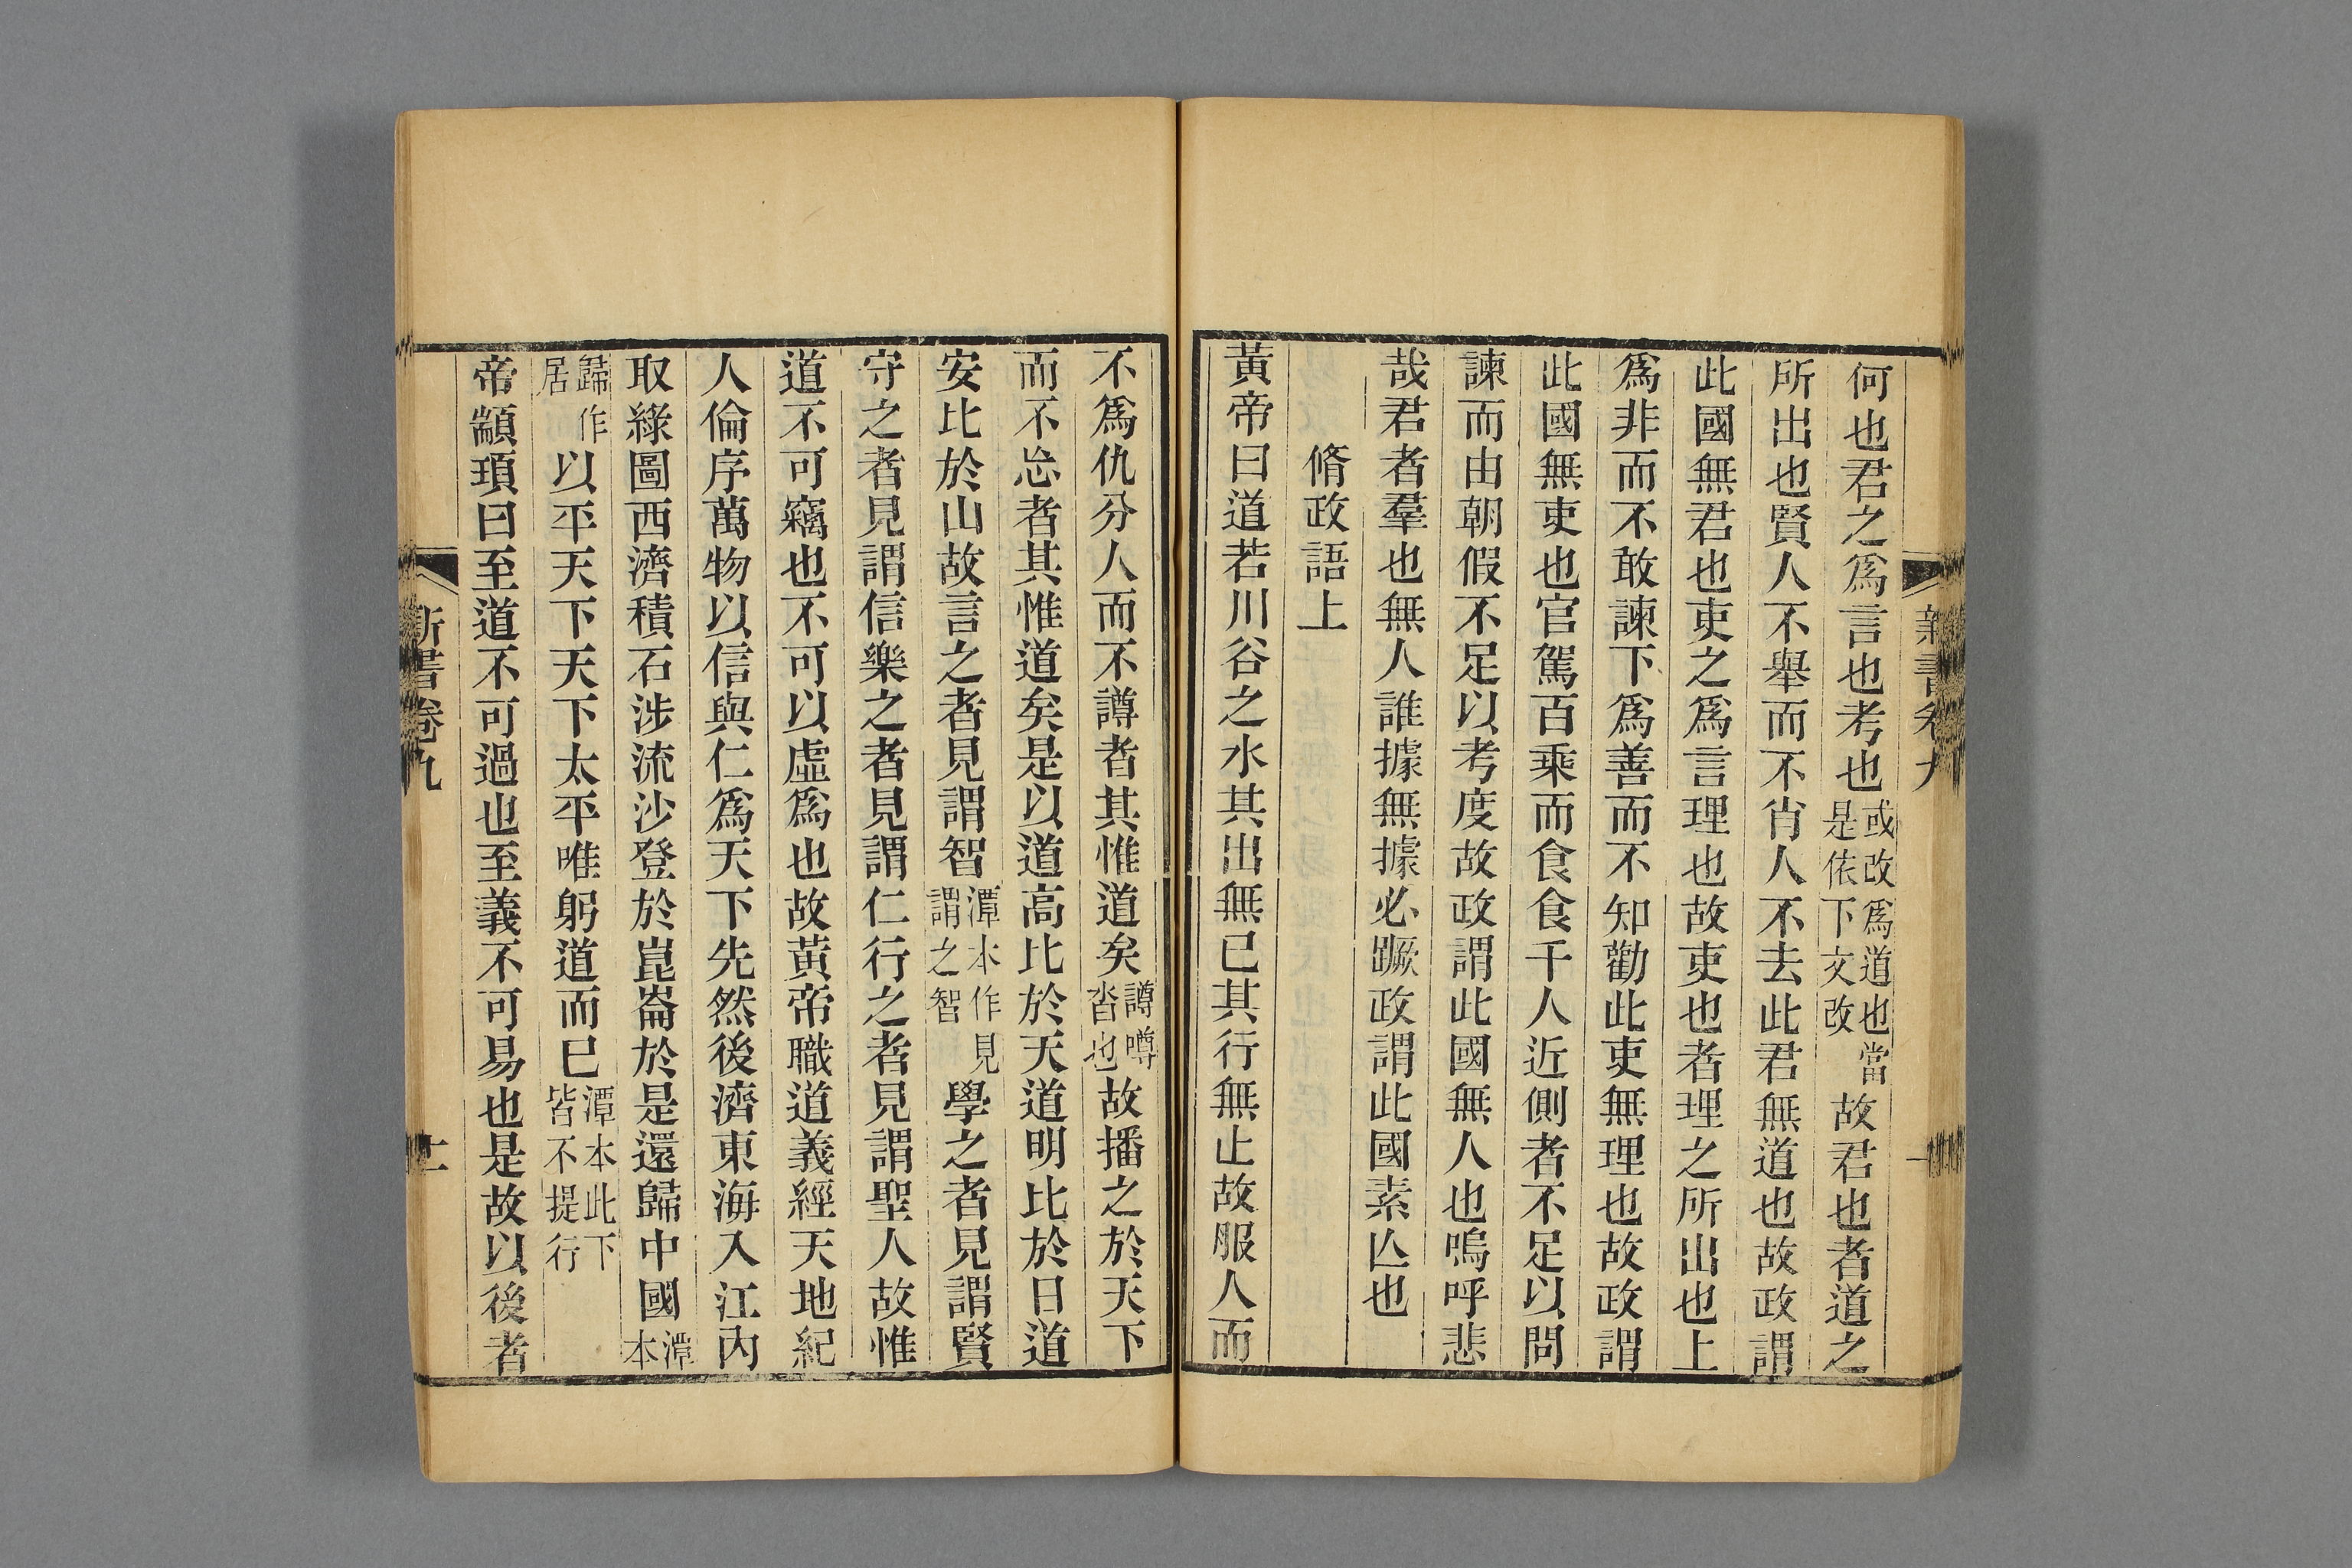 新書卷九
何也君之爲言也考也或改爲道也當是依下文改故君也者道之
所出也賢人不舉而不肖人不去此君無道也故政謂
此國無君也吏之爲言理也故吏也者理之所出也上
爲非而不敢諫下爲善而不知勸此吏無理也故政謂
此國無吏也官駕百乘而食食千人近側者不足以問
諫而由朝假不足以考度故政謂此國無人也嗚呼悲
哉君者羣也無人誰據無據必蹶政謂此國素亾也
脩政語上
黃帝曰道若川谷之水其出無已其行無止故服人而
不爲仇分人而不譐者其惟道矣譐噂沓也故播之於天下
而不忘者其惟道矣是以道高比於天道明比於日道
安比於山故言之者見謂智潭本作見謂之智學之者見謂賢
守之者見謂信樂之者見謂仁行之者見謂聖人故惟
道不可竊也不可以虛爲也故黃帝職道義經天地紀
人倫序萬物以信與仁爲天下先然後濟東海入江內
取綠圖西濟積石涉流沙登於崑崙於是還歸中國潭本
歸作居以平天下天下太平唯躬道而已潭本此下皆不提行
帝顓頊曰至道不可過也至義不可易也是故以後者
新書卷九